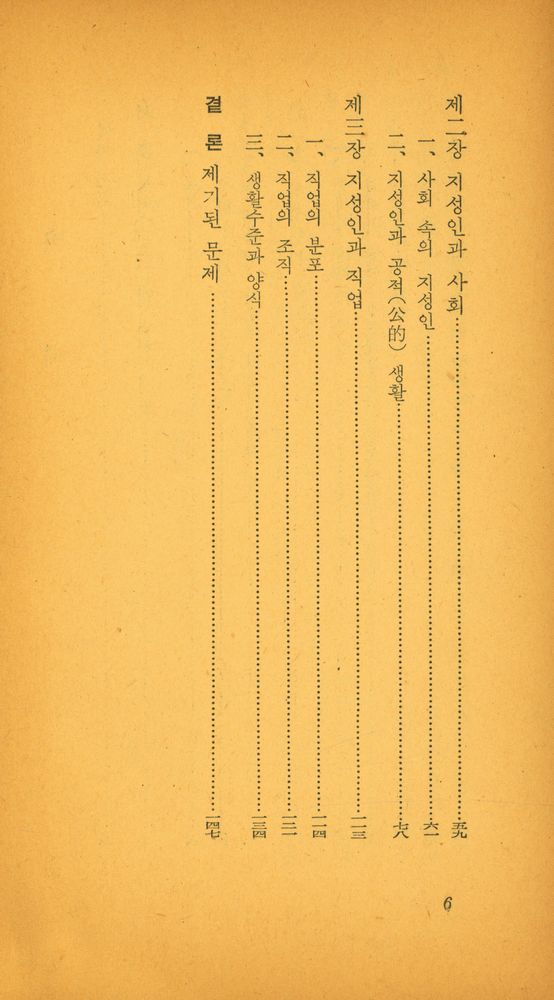 제二장 지성인과 사회……五九
一、사회 속의 지성인……六一
二、지성인과 공적(公的) 생활……七八
제三장 지성인과 직업……一一三
一、직업의 분포……一一四
二、직업의 조직……一二一
三、생활수준과 양식……一三四
결 론 제기된 문제……一四七
6